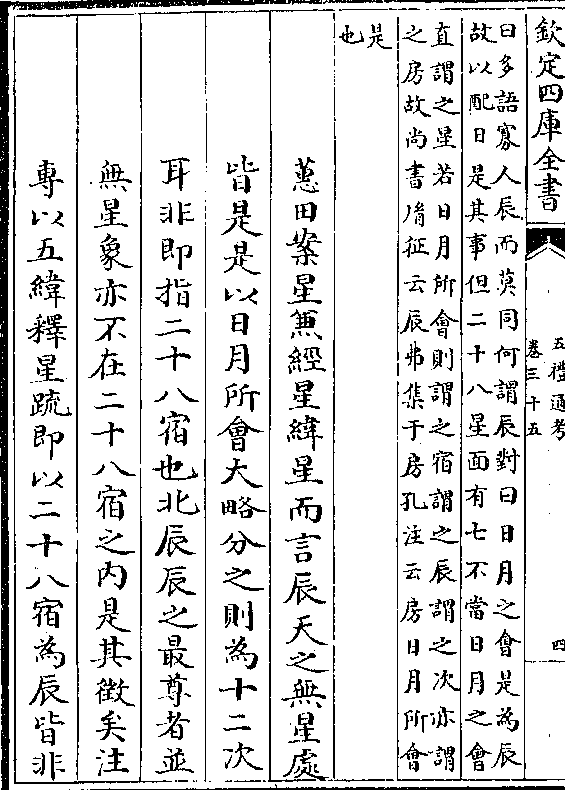 欽定四庫全書
五禮通考
卷三十五
四
曰多語寡人辰而莫同何謂辰對曰日月之會是為辰
故以配日是其事但二十八星面有七不當日月之會
直謂之星若日月所會則謂之宿謂之辰謂之次亦謂
之房故尚書𦙍征云辰弗集于房孔注云房日月所會
是
也
蕙田案星兼經星緯星而言辰天之無星處
皆是是以日月所會大略分之則為十二次
耳非即指二十八宿也北辰辰之最尊者並
無星象亦不在二十八宿之内是其徵矣注
專以五緯釋星疏即以二十八宿為辰皆非